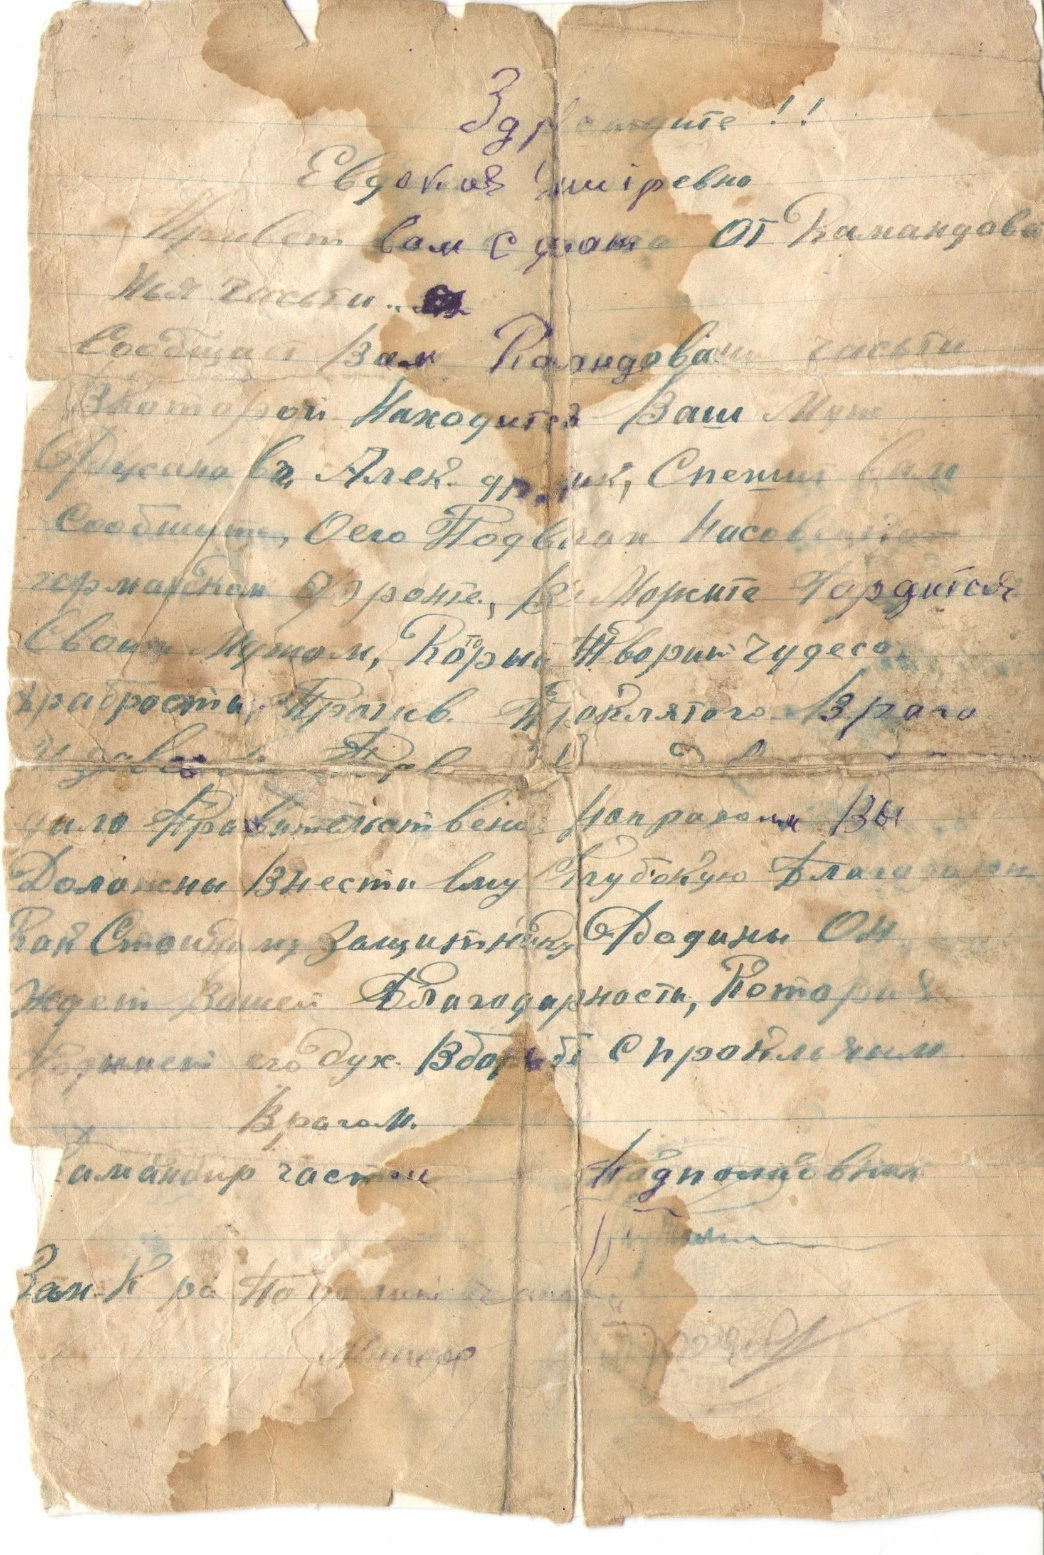 Здраствуйте !!
Евдокия
Привет вам с фронта от Камандова
нья часьти
Сообщает Вам Камандование часьти
Вкоторой Находится Ваш Муж
Алек. Спешит вам
Сообшить, Оего Подвигах
германском Фронте, ВыМожите Гордится
Своим Мужом, Который Творит Чудеса
храбрости, Против Проклятого Врага

Правительствен Награами Вы
Должны Внести ему Глубокую Благадар
Как Стойкому Защитнику Родины Он
Ждет Вашей Благодарности, Которая
Подымет его дух Вборьбе С проклятым
Врагом.
Камандир части Подполковник

Зам. К ра По части
Маиор